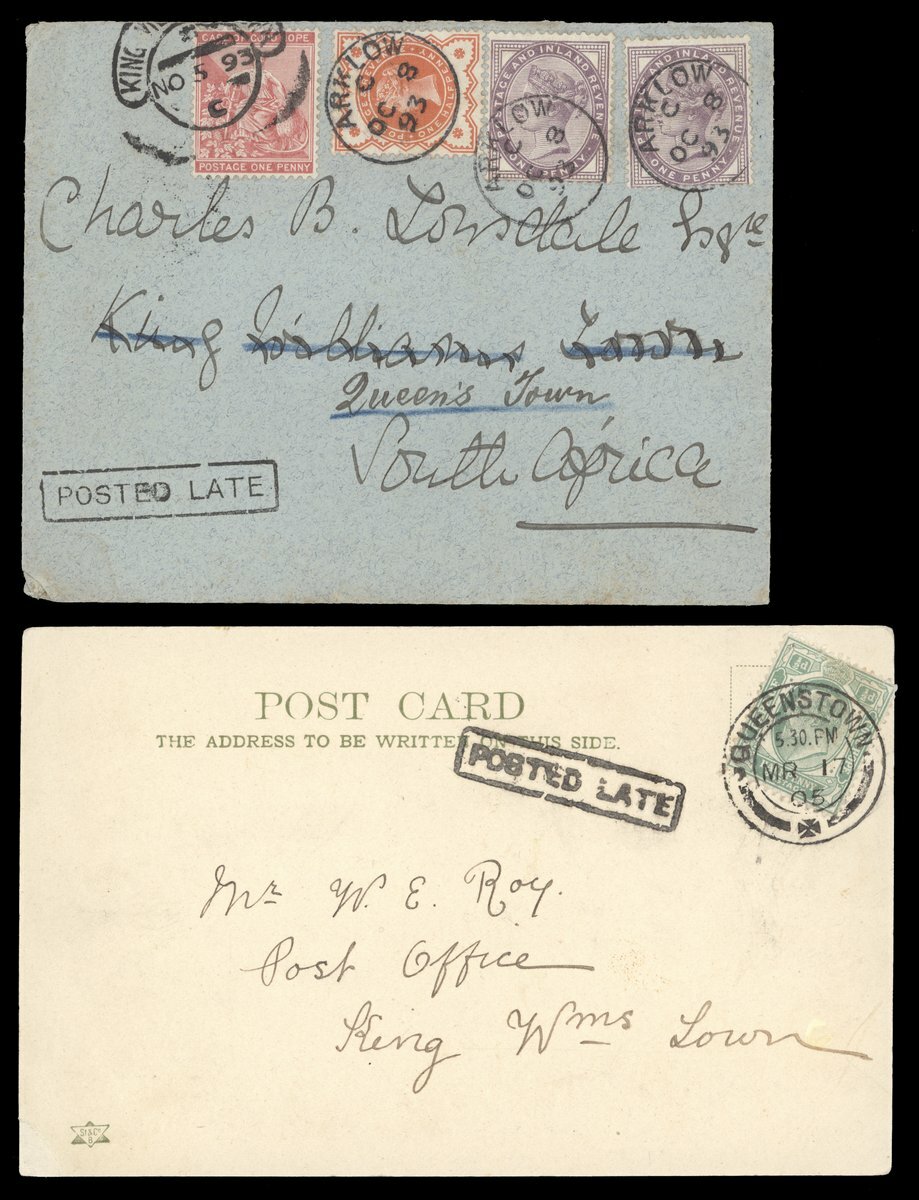 CAPE OF GOOD HOPE
POSTAGE ONE PENNY
NO 5 93
C
ARKLOW
C
OC 8
93
POSTAGE AND INLAND REVENUE
ONE PENNY
ARKLOW
C
OC 8
93
ARKLOW
C
OC 8
93
ONE PENNY
Charles B. Lonsdale Esqre
King Williams Town
Queen's Town
South Africa
POSTED LATE
POST CARD
THE ADDRESS TO BE WRITTEN ON THIS SIDE.
POSTED LATE
½d ½d
QUEENSTOWN
5.30.PM
MR 17
05
Mr W. E. Roy.
Post Office
King Wms Town
St & Co
B